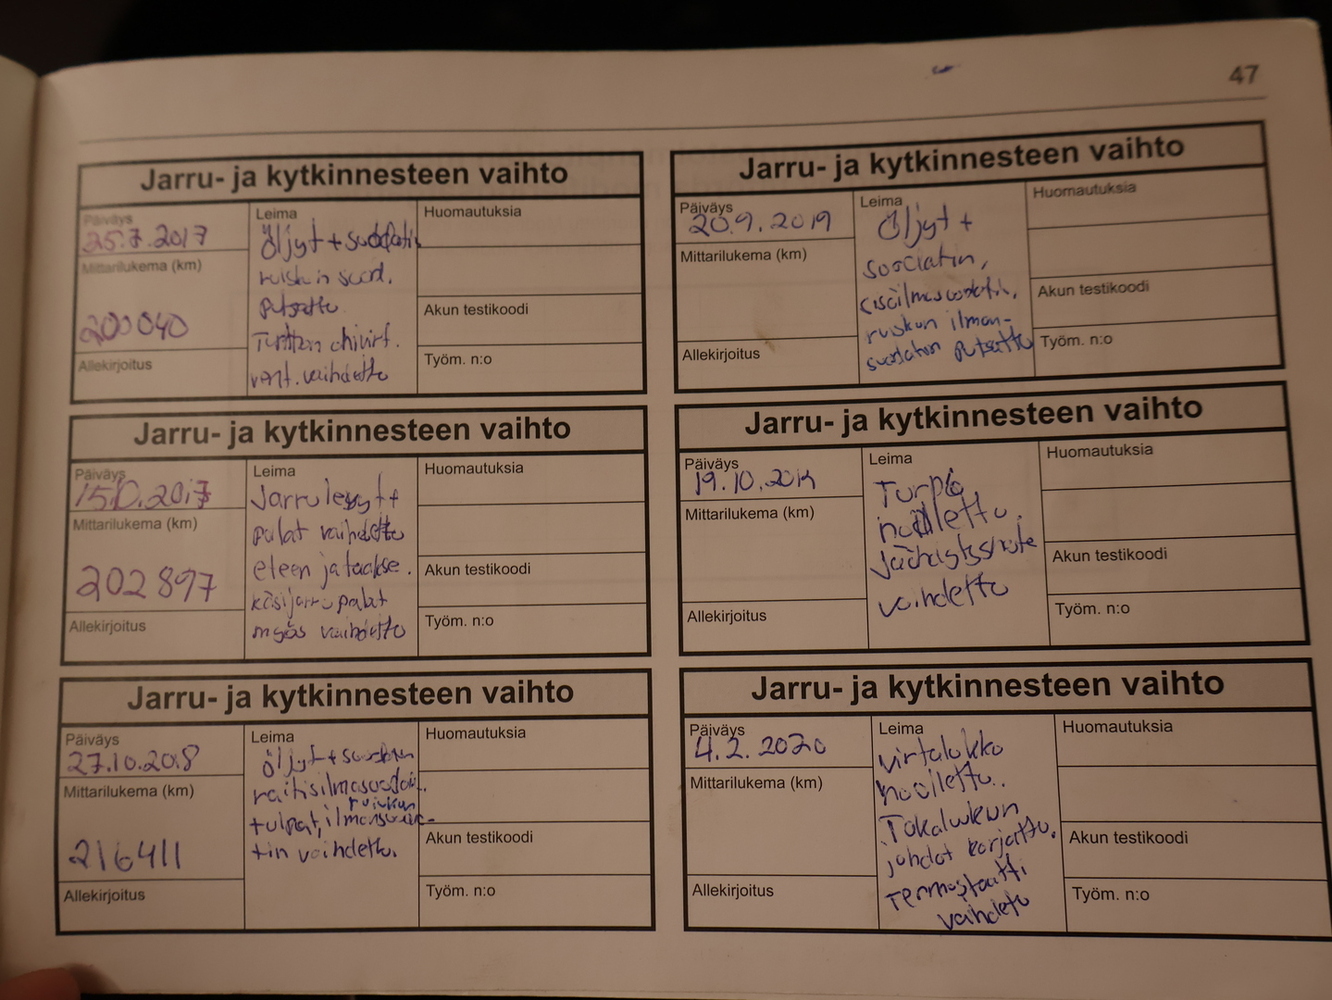 47
Jarru- ja kytkinnesteen vaihto
Päiväys
25.7.2017
Mittarilukema (km)
200040
Allekirjoitus
Leima
Öljyt + suodatin
ruiskun suod.
putsattu
Turbon ohivirt.
vent. vaihdettu
Huomautuksia
Akun testikoodi
Työm. n:o
Jarru- ja kytkinnesteen vaihto
Päiväys
2017
Mittarilukema (km)
202897
Allekirjoitus
Leima
Jarrulevyt +
palat vaihdettu
eteen ja taakse.
käsijarrupalat
myös vaihdettu
Huomautuksia
Akun testikoodi
Työm. n:o
Jarru- ja kytkinnesteen vaihto
Päiväys
27.10.2018
Mittarilukema (km)
216411
Allekirjoitus
Leima
Öljyt + suodatin
raitisilmasuodat.
ruiskun
tulpat, ilmansuoda-
tin vaihdettu.
Huomautuksia
Akun testikoodi
Työm. n:o
Jarru- ja kytkinnesteen vaihto
Päiväys
20.9.2019
Mittarilukema (km)
Allekirjoitus
Leima
Öljyt +
suodatin,
sisäilmasuodatin,
ruiskun ilman-
suodatin putsattu
Huomautuksia
Akun testikoodi
Työm. n:o
Jarru- ja kytkinnesteen vaihto
Päiväys
19.10.2019
Mittarilukema (km)
Allekirjoitus
Leima
Turbo
huollettu.
Jäähdytysneste
vaihdettu
Huomautuksia
Akun testikoodi
Työm. n:o
Jarru- ja kytkinnesteen vaihto
Päiväys
4.2.2020
Mittarilukema (km)
Allekirjoitus
Leima
Virtalukko
huollettu.
Takaluukun
johdot korjattu.
Termostaatti
vaihdettu
Huomautuksia
Akun testikoodi
Työm. n:o